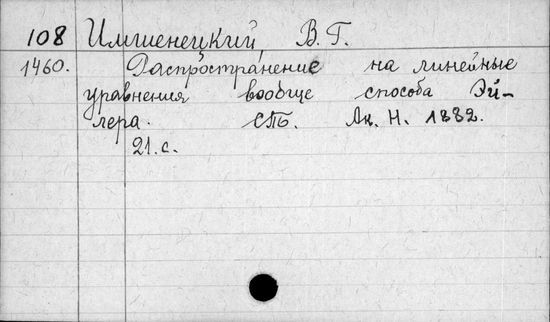 108 Имшенецкий, В. Г.
1460. Распространение на линейные
уравнения вообще способа Эй-
лера. СПб. Ак. Н. 1882.
21. с.